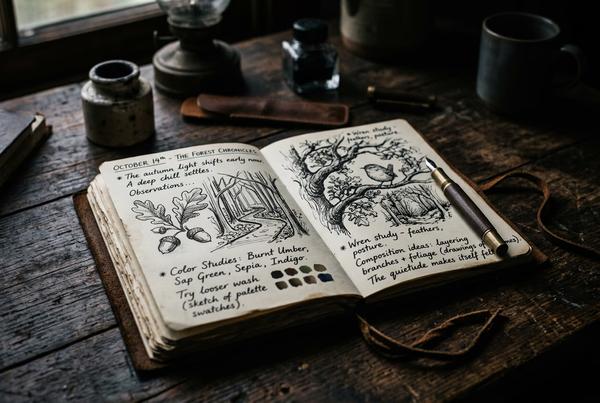 OCTOBER 14th - THE FOREST CHRONICLES
* The autumn light shifts early now
A deep chill settles.
Observations...
* Color Studies: Burnt Umber,
Sap Green, Sepia, Indigo
Try looser wash
(sketch of palette
swatches).
* Wren study -
feathers, posture
* Wren study - feathers,
posture.
Composition ideas: layering
branches + foliage (drawings of
The quietude makes itself